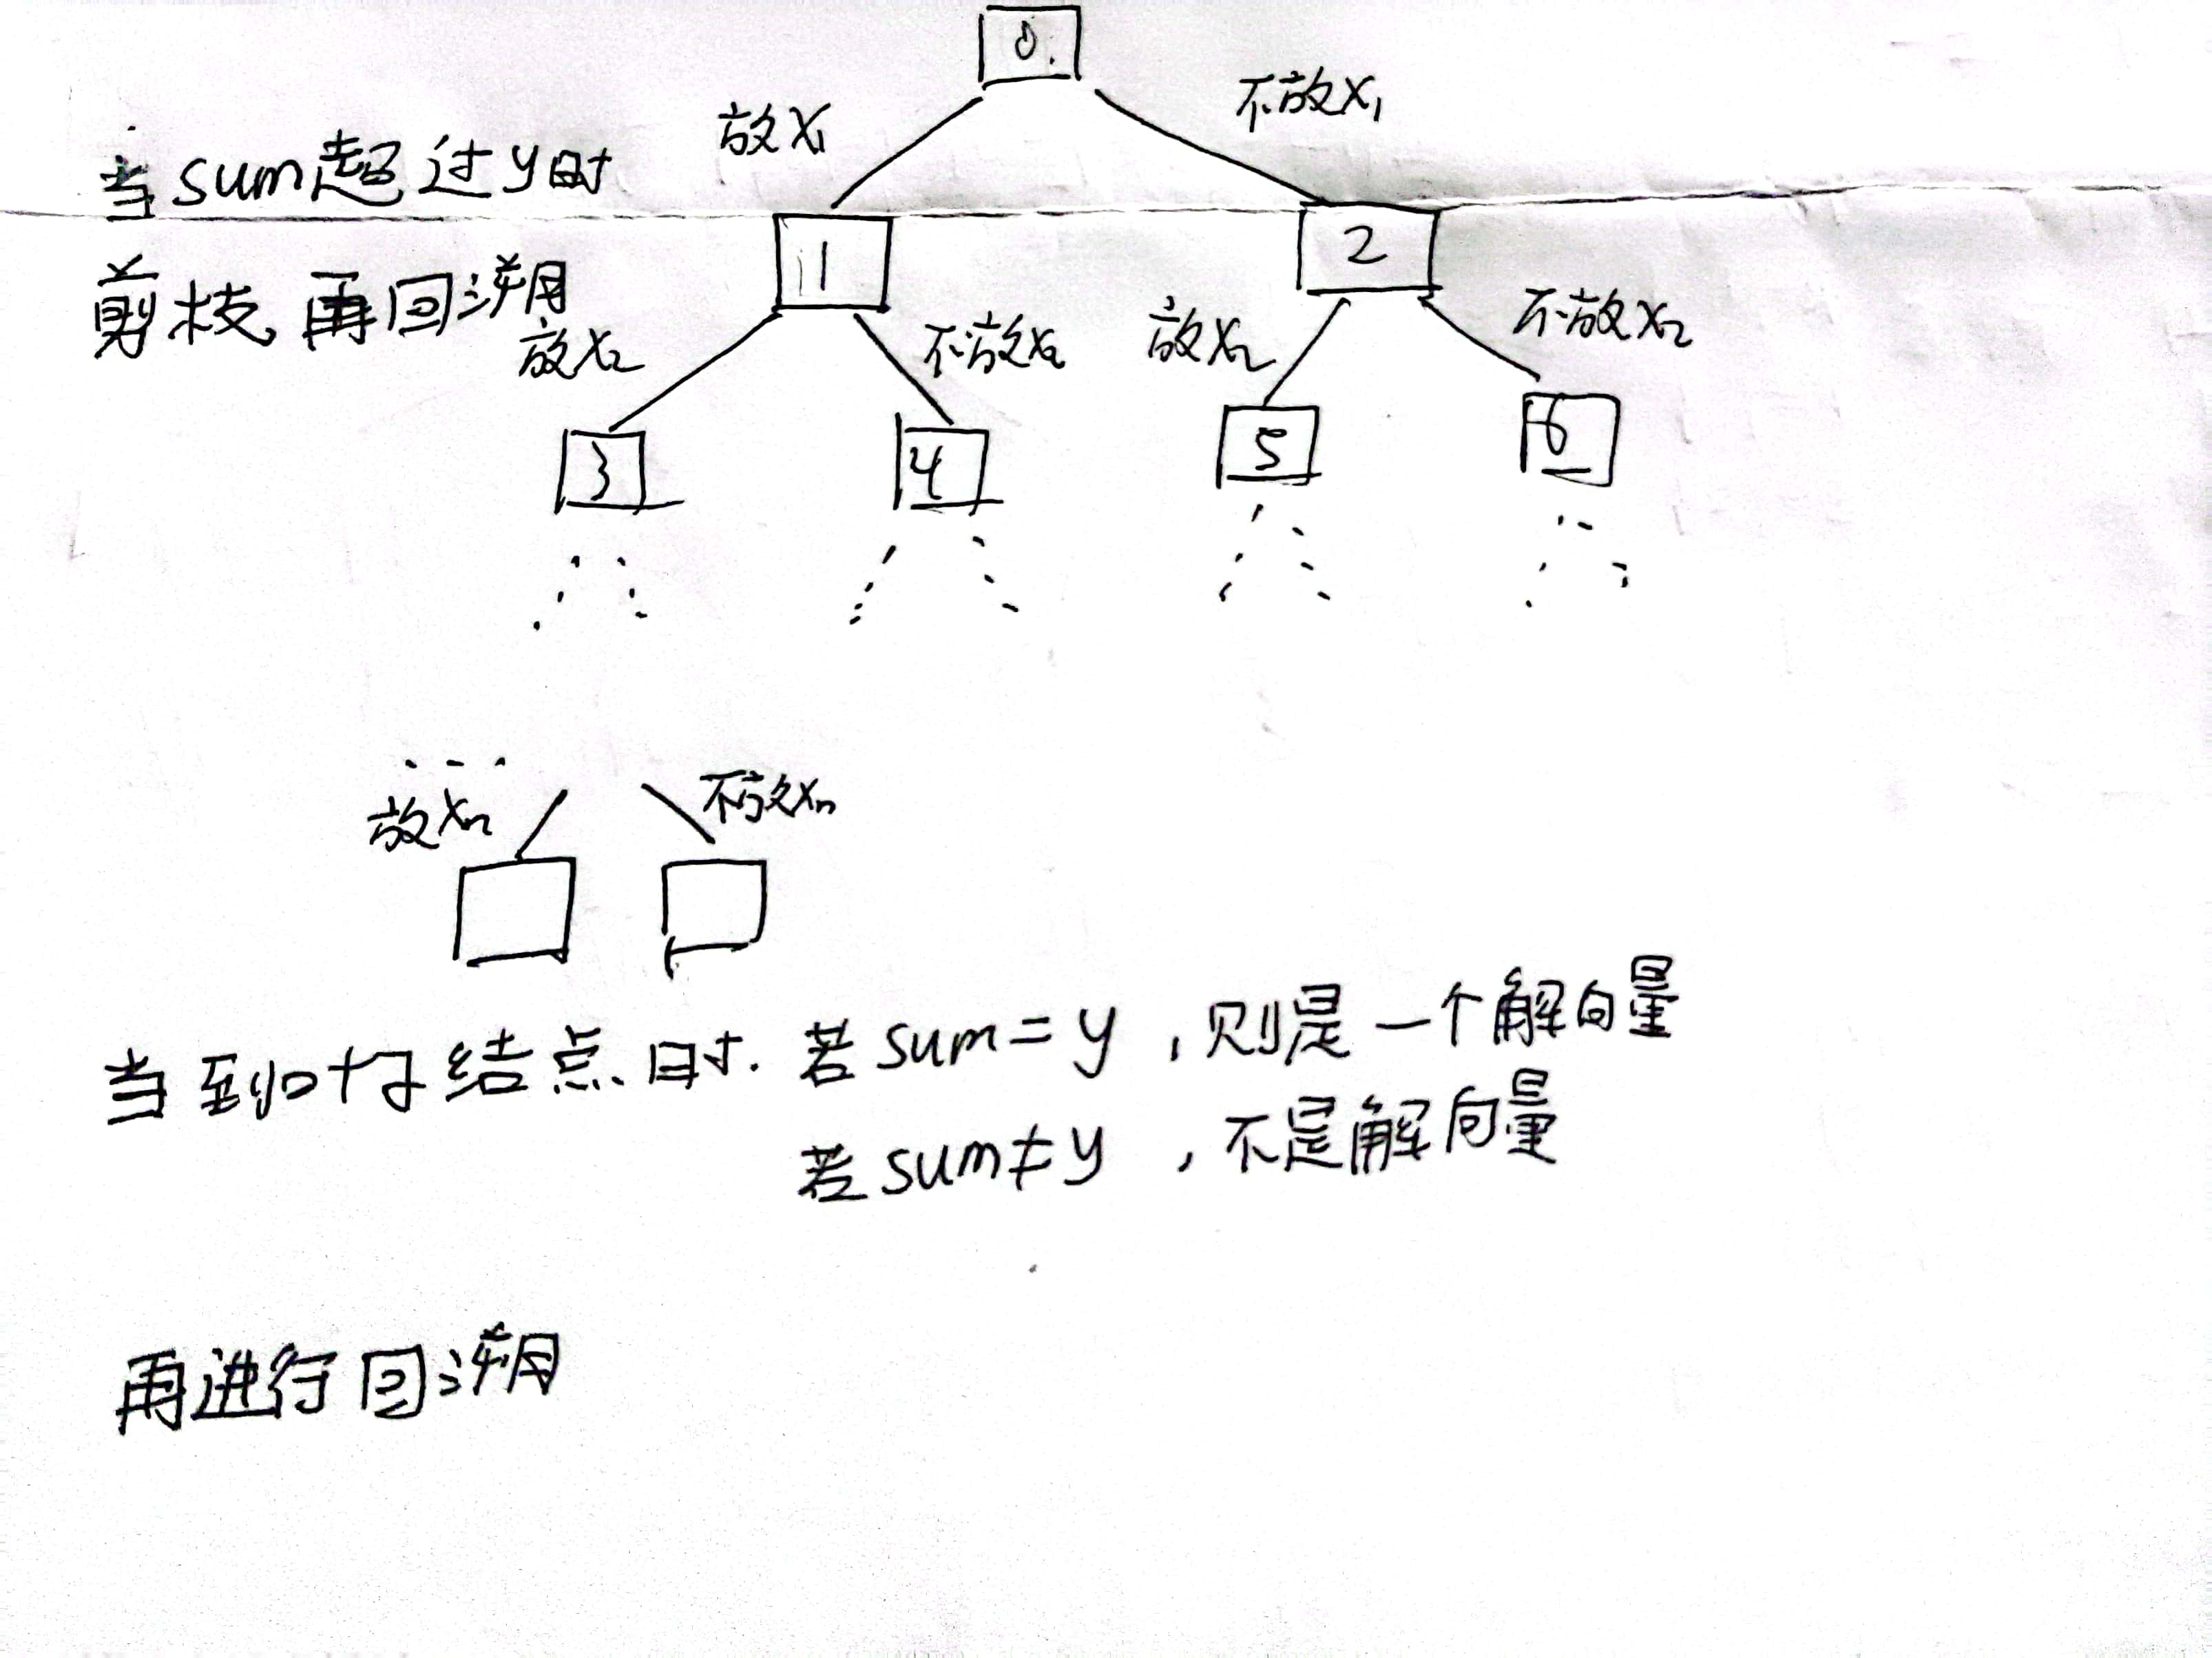 0
放X₁
不放X₁
当sum超过y时
剪枝,再回溯
1
2
放X₂
不放X₂
放X₂
不放X₂
3
4
5
6
...
放Xn
不放Xn
当到叶子结点时. 若sum=y,则是一个解向量
若sum≠y,不是解向量
再进行回溯